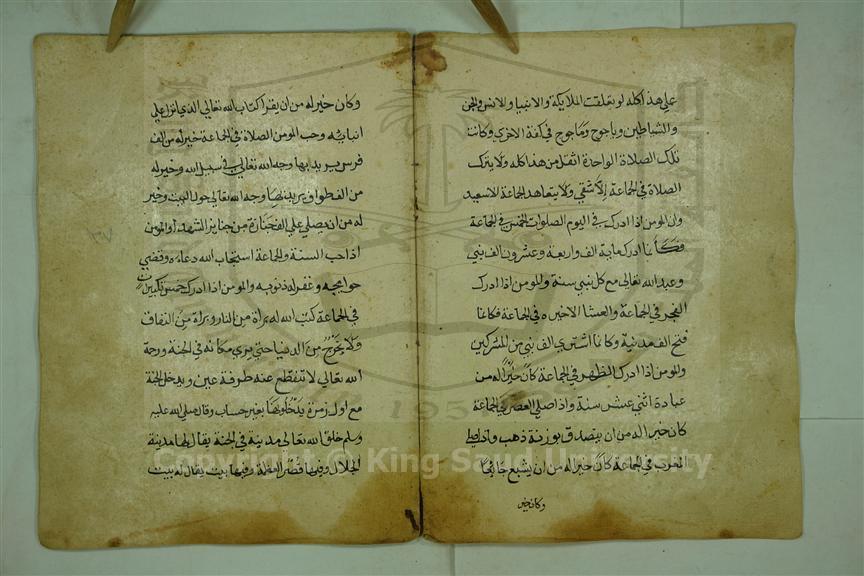 على هذا كله لو تعلقت الملايكة والانبيا والانس والجن
والشياطين وياجوج وماجوج في كفة الاخري وكانت
تلك الصلاة الواحدة اثقل من هذا كله ولا يترك
الصلاة في الجماعة الا شقي ولا يتعاهد الجماعة الا سعيد
وان المومن اذا ادرك في اليوم الصلوات الخمس في الجماعة
فكانما ادرك ماية الف واربعة وعشرون الف نبي
وعبد الله تعالى مع كل نبي سنة والمومن اذا ادرك
الفجر في الجماعة والعشا الاخيره في الجماعة فكانما
فتح الف مدينة وكانما اشتري الف نبي من المشركين
والمومن اذا ادرك الظهر في الجماعة كان خيرا له من
عبادة اثني عشر سنة واذا صلي العصر في الجماعة
كان خيرا له من ان يتصدق بوزنة ذهب واذا صلي
المغرب في الجماعة كان خيرا له من ان يشبع جايعا
وكان خير
وكان خير له من ان يقرا كتاب الله تعالي الذي انزل علي
انبيائه وحب المومن الصلاة في الجماعة خير له من الف
فرس يريد بها وجه الله تعالي في سبيل الله وخير له
من الف طواف يريد بها وجه الله تعالى حول البيت وخير
له من ان يصلي علي الف جنازة من جنايز الشهدا والمومن
اذا حب السنة والجماعة استجاب الله دعاءه وقضي
حوايجه وغفر له ذنوبه والمومن اذا ادرك خمس تكبيرات
في الجماعة كتب الله له براة من النار وبراة من النفاق
ولا يخرج من الدنيا حتي يري مكانه في الجنة ورحمة
الله تعالي لا تنقطع عنه طرفة عين ويدخل الجنة
مع اول زمرة يدخلونها بغير حساب وقال صلي الله عليه
وسلم خلق الله تعالى مدينه في الجنة يقال لها مدينة
الجلال وفيها قصر العظمة وفيها بيت يقال له بيت
Copyright © King Saud University
195